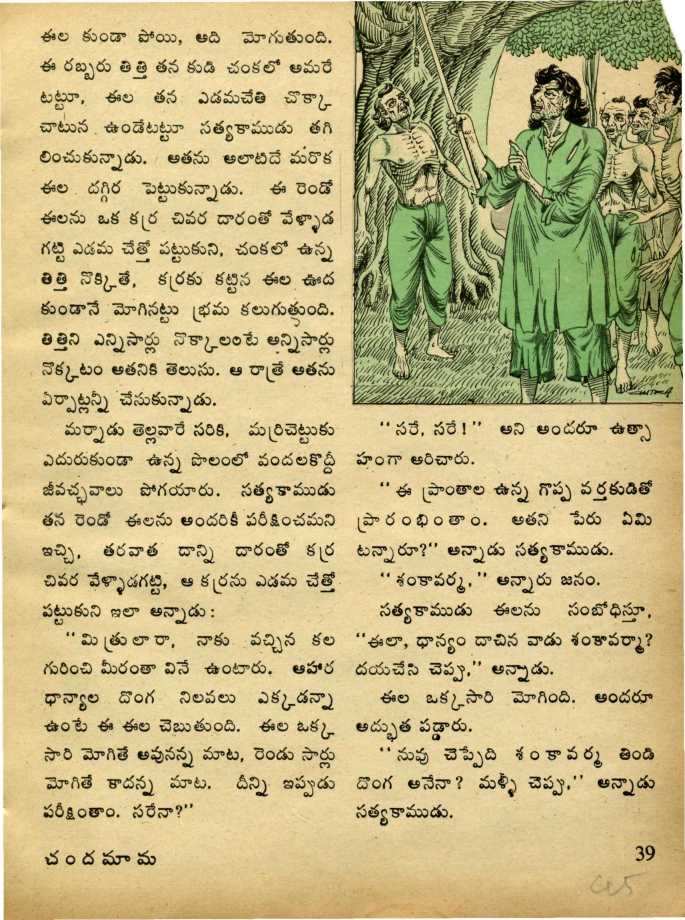 ఈల కుండా పోయి, అది మోగుతుంది.
ఈ రబ్బరు తిత్తి తన కుడి చంకలో అమరే
టట్టూ, ఈల తన ఎడమచేతి చొక్కా
చాటున ఉండేటట్టూ సత్యకాముడు తగి
లించుకున్నాడు. అతను అలాటిదే మరొక
ఈల దగ్గిర పెట్టుకున్నాడు. ఈ రెండో
ఈలను ఒక కర్ర చివర దారంతో వేళ్ళాడ
గట్టి ఎడమ చేత్తో పట్టుకుని, చంకలో ఉన్న
తిత్తి నొక్కితే, కర్రకు కట్టిన ఈల ఊద
కుండానే మోగినట్టు భ్రమ కలుగుతుంది.
తిత్తిని ఎన్నిసార్లు నొక్కాలంటే అన్నిసార్లు
నొక్కటం అతనికి తెలుసు. ఆ రాత్రే అతను
ఏర్పాట్లన్నీ చేసుకున్నాడు.
మర్నాడు తెల్లవారే సరికి, మర్రిచెట్టుకు
ఎదురుకుండా ఉన్న పొలంలో వందలకొద్దీ
జీవచ్ఛవాలు పోగయారు. సత్యకాముడు
తన రెండో ఈలను అందరికీ పరీక్షించమని
ఇచ్చి, తరవాత దాన్ని దారంతో కర్ర
చివర వేళ్ళాడగట్టి, ఆ కర్రను ఎడమ చేత్తో
పట్టుకుని ఇలా అన్నాడు:
"మిత్రులారా, నాకు వచ్చిన కల
గురించి మీరంతా వినే ఉంటారు. ఆహార
ధాన్యాల దొంగ నిలవలు ఎక్కడన్నా
ఉంటే ఈ ఈల చెబుతుంది. ఈల ఒక్క
సారి మోగితే అవునన్న మాట, రెండు సార్లు
మోగితే కాదన్న మాట. దీన్ని ఇప్పుడు
పరీక్షింతాం. సరేనా?"
"సరే, సరే!" అని అందరూ ఉత్సా
హంగా అరిచారు.
"ఈ ప్రాంతాల ఉన్న గొప్ప వర్తకుడితో
ప్రారంభింతాం. అతని పేరు ఏమి
టన్నారూ?" అన్నాడు సత్యకాముడు.
"శంకావర్మ," అన్నారు జనం.
సత్యకాముడు ఈలను సంబోధిస్తూ,
"ఈలా, ధాన్యం దాచిన వాడు శంకావర్మా?
దయచేసి చెప్పు," అన్నాడు.
ఈల ఒక్కసారి మోగింది. అందరూ
అద్భుత పడ్డారు.
"నువు చెప్పేది శంకావర్మ తిండి
దొంగ అనేనా? మళ్ళీ చెప్పు," అన్నాడు
సత్యకాముడు.
చందమామ
39